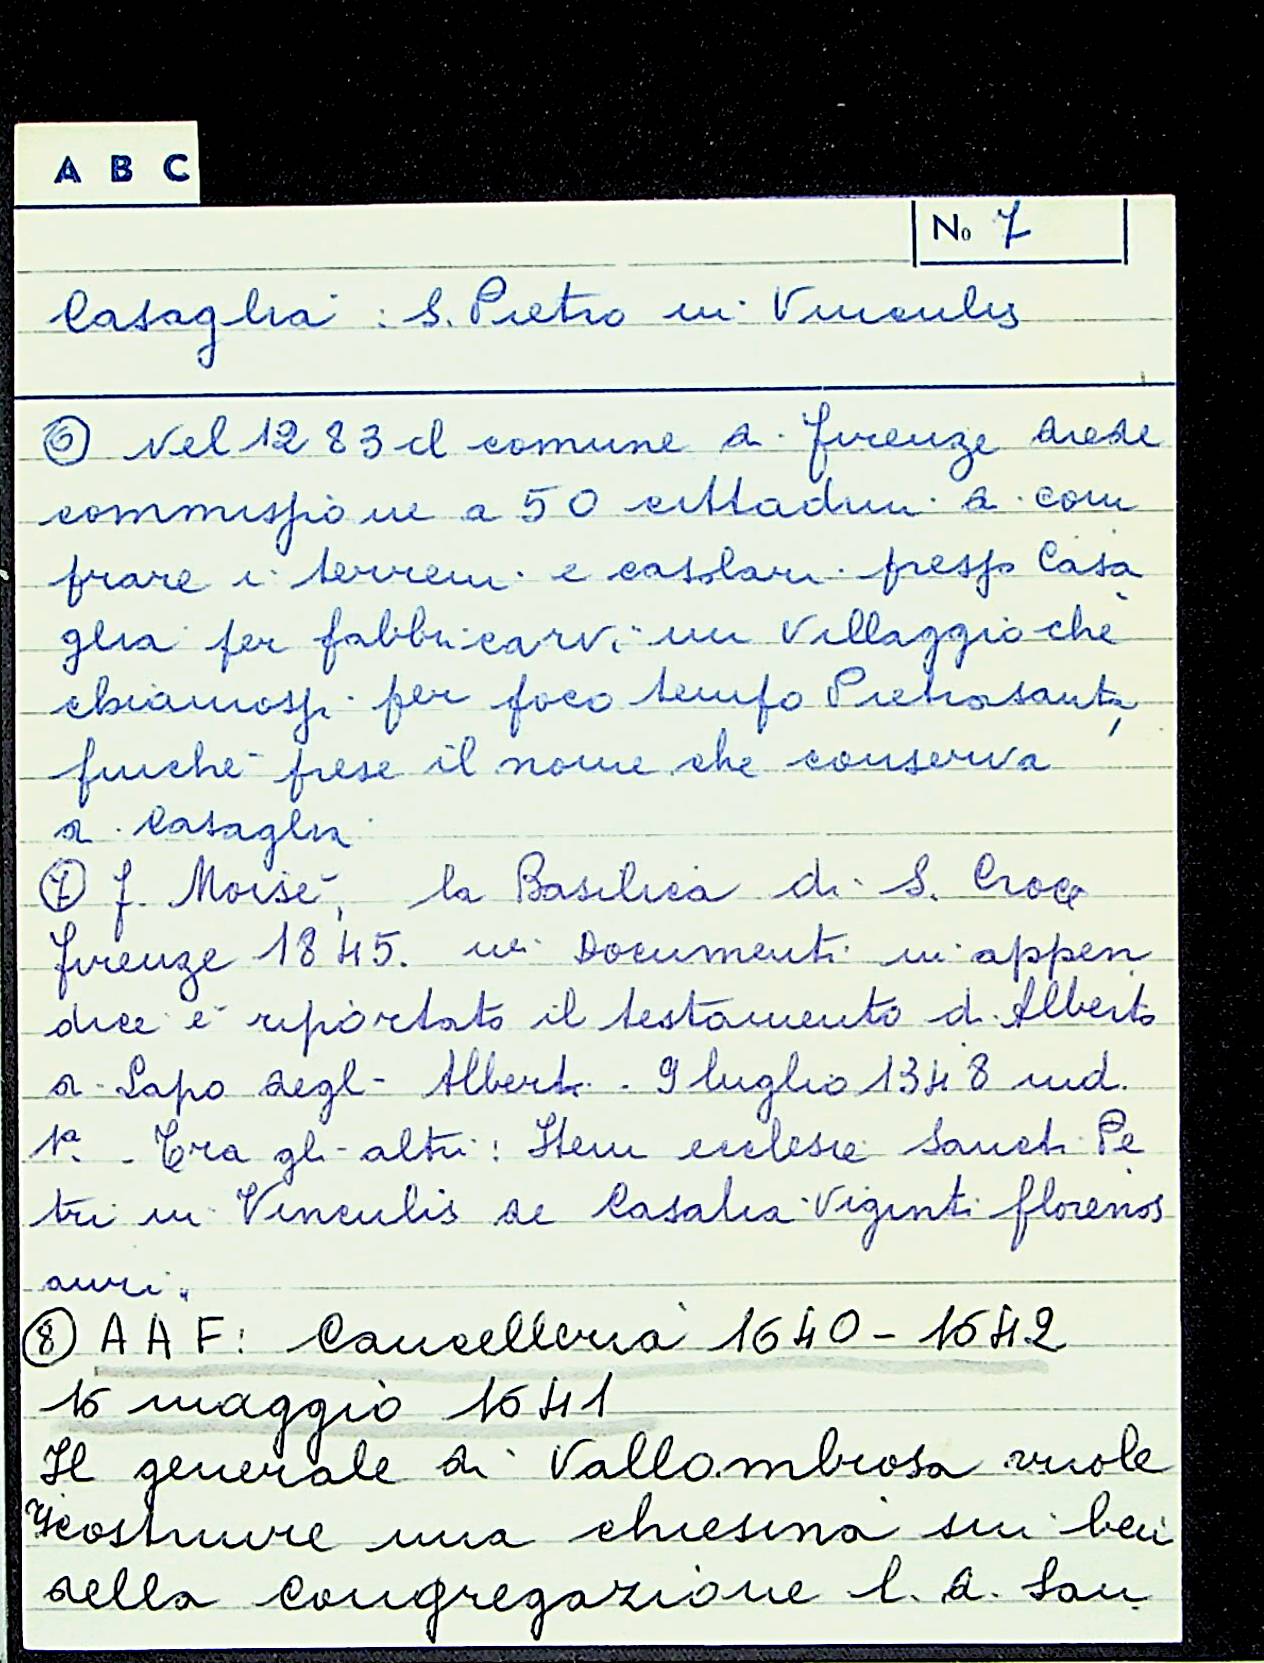 A B C
No 7
Casaglia : S. Pietro in Vinculis
⑥ Nel 1283 il comune di Firenze diede
commissione a 50 cittadini di com
prare i terreni e casolari presso Casa
glia per fabbricarvi un villaggio che
chiamossi per poco tempo Pietrasanta,
finché prese il nome che conserva
di Casaglia
⑦ F. Moisè, la Basilica di S. Croce
Firenze 1845. nei Documenti in appen
dice è riportato il testamento di Alberto
di Lapo degl- Alberti - 9 luglio 1348 ind.
1ª. - Tra gli altri: Item ecclesie Sancti Pe
tri in Vinculis de Casalia viginti florenos
auri.
⑧ AAF: Cancelleria 1640-1642
16 maggio 1641
Il generale di Vallombrosa vuole
ricostruire una chiesina sui beni
della Congregazione l. d. San